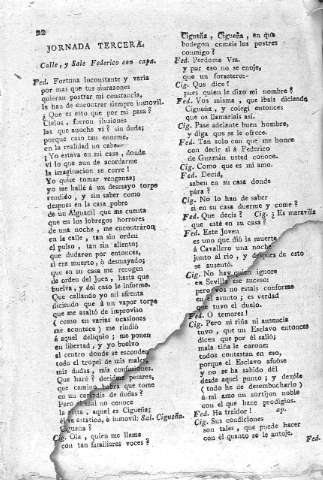 22
JORNADA TERCERA.
Calle, y Sale Federico con capa.
Fed. Fortuna inconstante y varia
por mas que tus
quieran postrar mi constancia,
la han de encontrar siempre inmovil.
¿Que es esto que por mi pasa?
Cielos, fueron ilusiones
las que anoche vi? sin duda;
porque caso tan enorme,
en la realidad no cabe
¡Yo estaba en mi casa, donde
vi lo que aun de acordarme
la imaginacion se corre!
Yo quise tomar venganza;
yo me hallé á un desmayo torpe
rendido, y sin saber como
despues en la casa pobre
de un Alguacil que me cuenta
que en los lobregos horrores
de una noche, me encontraron
en la calle, tan sin orden
el pulso, tan sin aliento;
que dudaron por entonces,
si era muerte, ó desmayado;
que en su casa me recogen
de orden del Juez, hasta que
vuelva, y del caso le informe.
Que callando yo mi afrenta
diciendo que á un vapor torpe
que me asaltó de improviso
(como en varias ocasiones
me acontece) me rindió
á aquel deliquio; me ponen
en libertad, y yo busco
al centro donde se esconde
todo el tropel de mis males,
mis dudas, mis confusiones.
Que haré? decidme pesares,
que camino habrá que tome
en un de dudas?
Pero al que no conoce
la , aquel es Cigueña;
estatico, é inmovil: Sal. Cigueña.
Cigueña?
Cig. Ola, quien me llama
con tan familiares voces?
Cigueña, Cigueña, en que
bodegon comais los postres
conmigo?
Fed. Perdone Vm.
y por eso no se enoje,
que un forastero-
Cig. Que dice?
pues quien le dixo mi nombre?
Fed. Vos misma, que ibais diciendo
Cigueña, y colegí entonces
que os llamariais asi.
Cig. Pase adelante buen hombre,
y diga que se le ofrece.
Fed. Tan solo con que me honre
con decir si á Federico
de Guzmán usted conoce.
Cig. Como que es mi amo.
Fed. Decid,
saben en su casa donde
pára?
Cig. No lo han de saber
si en su casa duerme y come?
Fed. Que decis? Cig. ¿Es maravilla
que esté en su casa?
Fed. Este Joven
es uno que dió la muerte
á Cavallero una noche
junto al rio, y despues de esto
se ausentó.
Cig. No hay quien ignore
en Sevilla ese suceso
pero vos no estais conforme
en el asunto; es verdad
que tuvo el duelo.
Fed. O temores!
Cig. Pero ni riña ni ausencia
tuvo, que un Esclavo entonces
dicen que por él salió;
mala tiña le carcome
todos contestan en eso,
porque el Esclavo afufóse
y no se ha sabido del
desde aquel punto; y dexóle
(todo he de desembucharlo)
á mi amo un sortijon noble
con el que hace prodigios.
Fed. Ha traidor! ap.
Cig. Sus condiciones
son tales, que puede hacer
con él quanto se le antoje.
Fed.